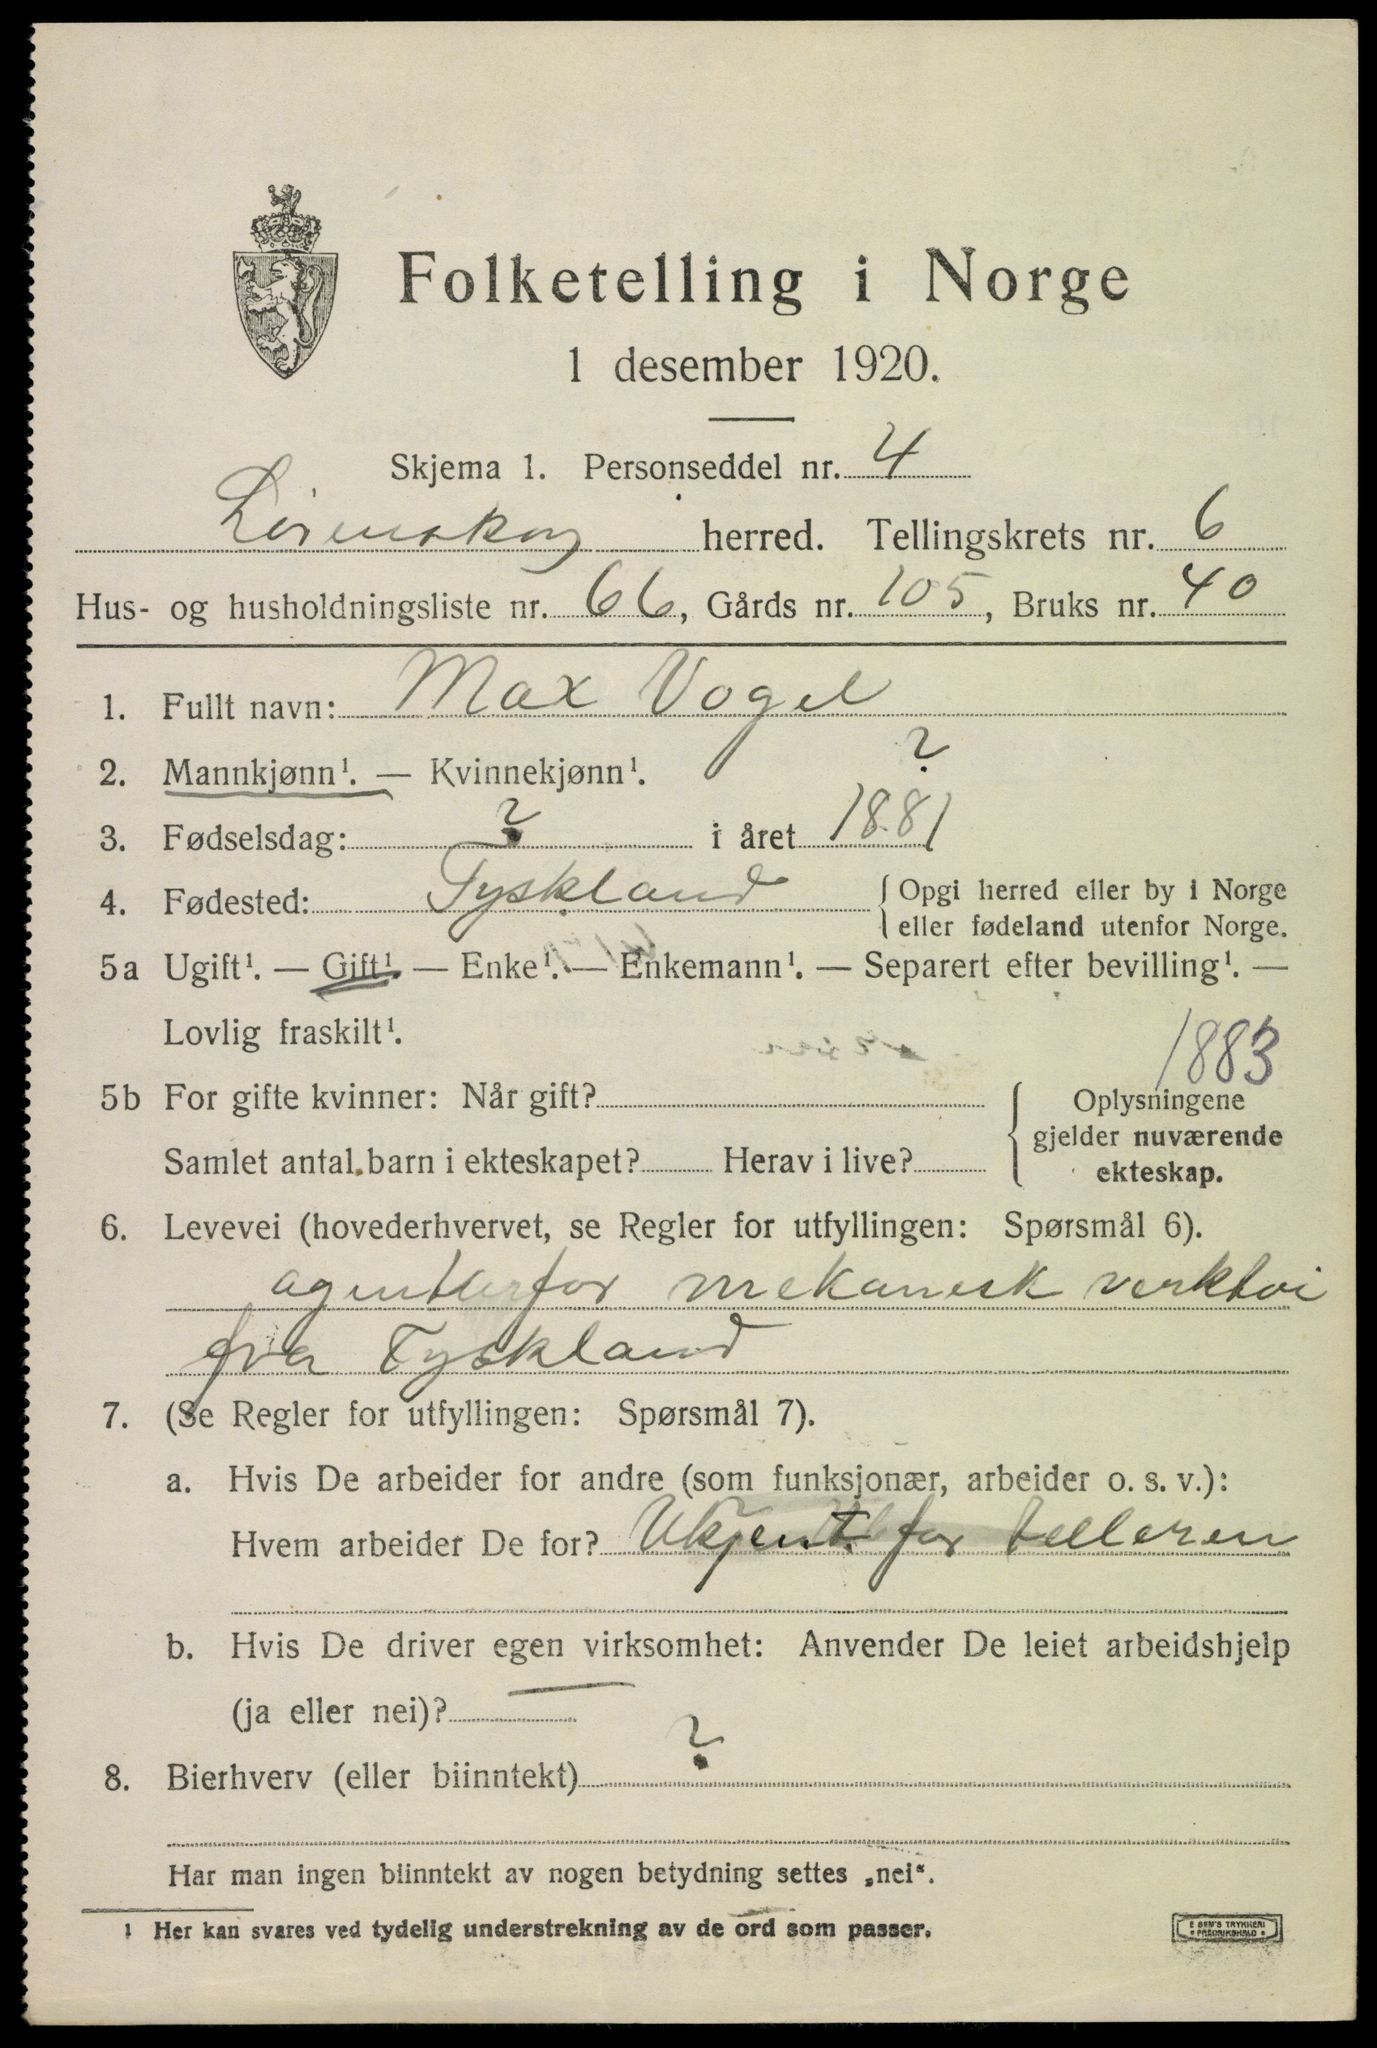 Folketelling i Norge
1 desember 1920.
Skjema 1. Personseddel nr. 4
Lörenskog herred. Tellingskrets nr. 6
Hus- og husholdningsliste nr. 66, Gårds nr. 105, Bruks nr. 40
1. Fullt navn: Max Vogel
2. Mannkjønn¹. — Kvinnekjønn¹. ?
3. Fødselsdag: ? i året 1881
4. Fødested: Tyskland { Opgi herred eller by i Norge
eller fødeland utenfor Norge.
5a Ugift¹. — Gift¹. — Enke¹. — Enkemann¹. — Separert efter bevilling¹. —
Lovlig fraskilt¹.
1883
5b For gifte kvinner: Når gift? { Oplysningene
gjelder nuværende
Samlet antal barn i ekteskapet? Herav i live? ekteskap.
6. Levevei (hovederhvervet, se Regler for utfyllingen: Spørsmål 6).
mekanisk verktöi
fra Tyskland
7. (Se Regler for utfyllingen: Spørsmål 7).
a. Hvis De arbeider for andre (som funksjonær, arbeider o. s. v.):
Hvem arbeider De for? Ukjent for telleren
b. Hvis De driver egen virksomhet: Anvender De leiet arbeidshjelp
(ja eller nei)? —
8. Bierhverv (eller biinntekt) ?
Har man ingen biinntekt av nogen betydning settes „nei“.
1 Her kan svares ved tydelig understrekning av de ord som passer.
E SEM'S TRYKKERI
FREDRIKSHALD